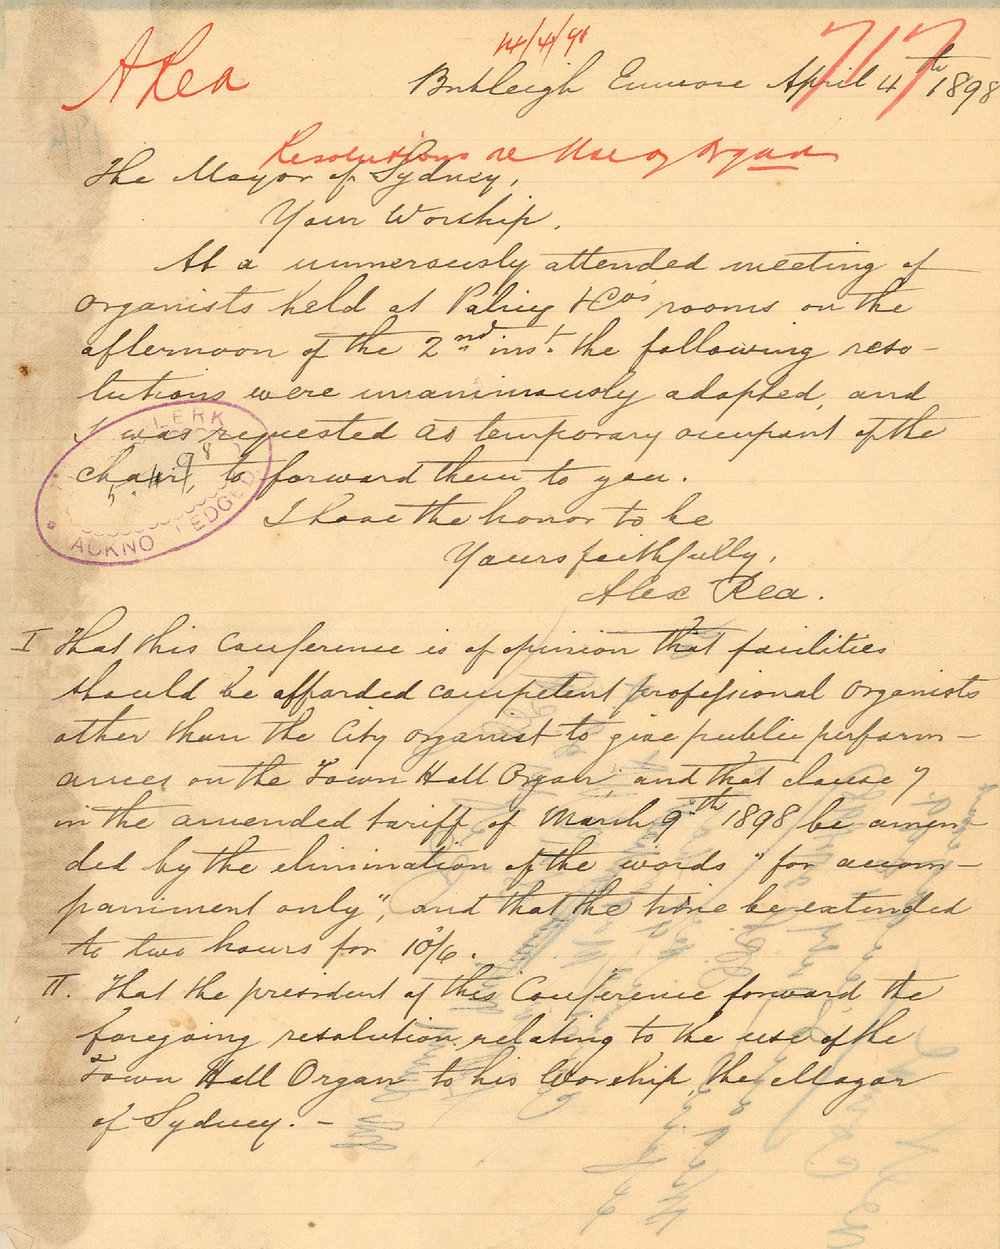 A Rea
14/4/98
717
Enmore April 4th 1898
Resolutions re Use of Organ
The Mayor of Sydney,
Your Worship,
At a numerously attended meeting of
organists held at Paling & Co's rooms on the
afternoon of the 2nd inst. the following reso-
lutions were unanimously adopted, and
I was requested as temporary occupant of the
chair, to forward them to you.
CLERK
5.4.98
ACKNO LEDGED
I have the honor to be
Yours faithfully,
Alex Rea.
I That this Conference is of opinion that facilities
should be afforded competent professional organists
other than the City organist to give public perform-
ances on the Town Hall Organ, and that clause 7
in the amended tariff of March 9th 1898 be amen-
ded by the elimination of the words "for accom-
paniment only", and that the time be extended
to two hours for 10/6.
II. That the president of this Conference forward the
foregoing resolution relating to the use of the
Town Hall Organ to his Worship, the Mayor
of Sydney. -